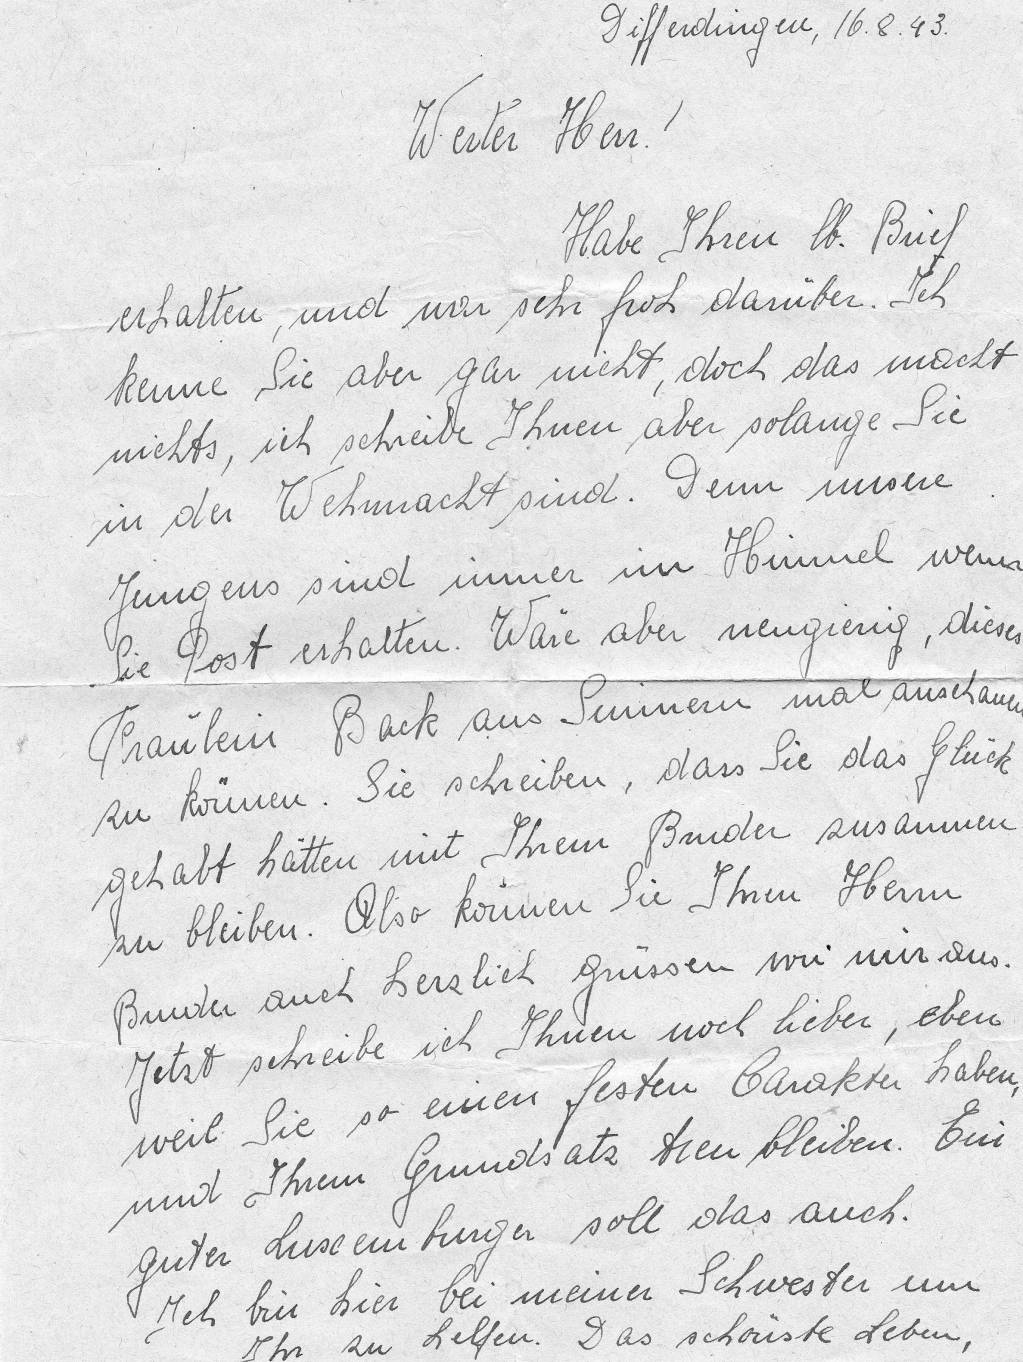 Differdingen, 16.8.43.
Werter Herr!
Habe Ihren lb. Brief
erhalten, und war sehr froh darüber. Ich
kenne Sie aber gar nicht, doch das macht
nichts, ich schreibe Ihnen aber solange Sie
in der Wehrmacht sind. Denn unsere
Jungens sind immer im Himmel wenn
Sie Post erhalten. Wäre aber neugierig, dieses
Fraülein Back aus Simmern mal anschauen
zu können. Sie schreiben, dass Sie das Glück
gehabt hätten mit Ihrem Bruder zusammen
zu bleiben. Also können Sie Ihren Herrn
Bruder auch herzlich grüssen von mir aus.
Jetzt schreibe ich Ihnen noch lieber, eben
weil Sie so einen festen Carakter haben,
und Ihrem Grundsatz treu bleiben. Ein
guter Luxemburger soll das auch.
Ich bin hier bei meiner Schwester um
Ihr zu helfen. Das schönste Leben,